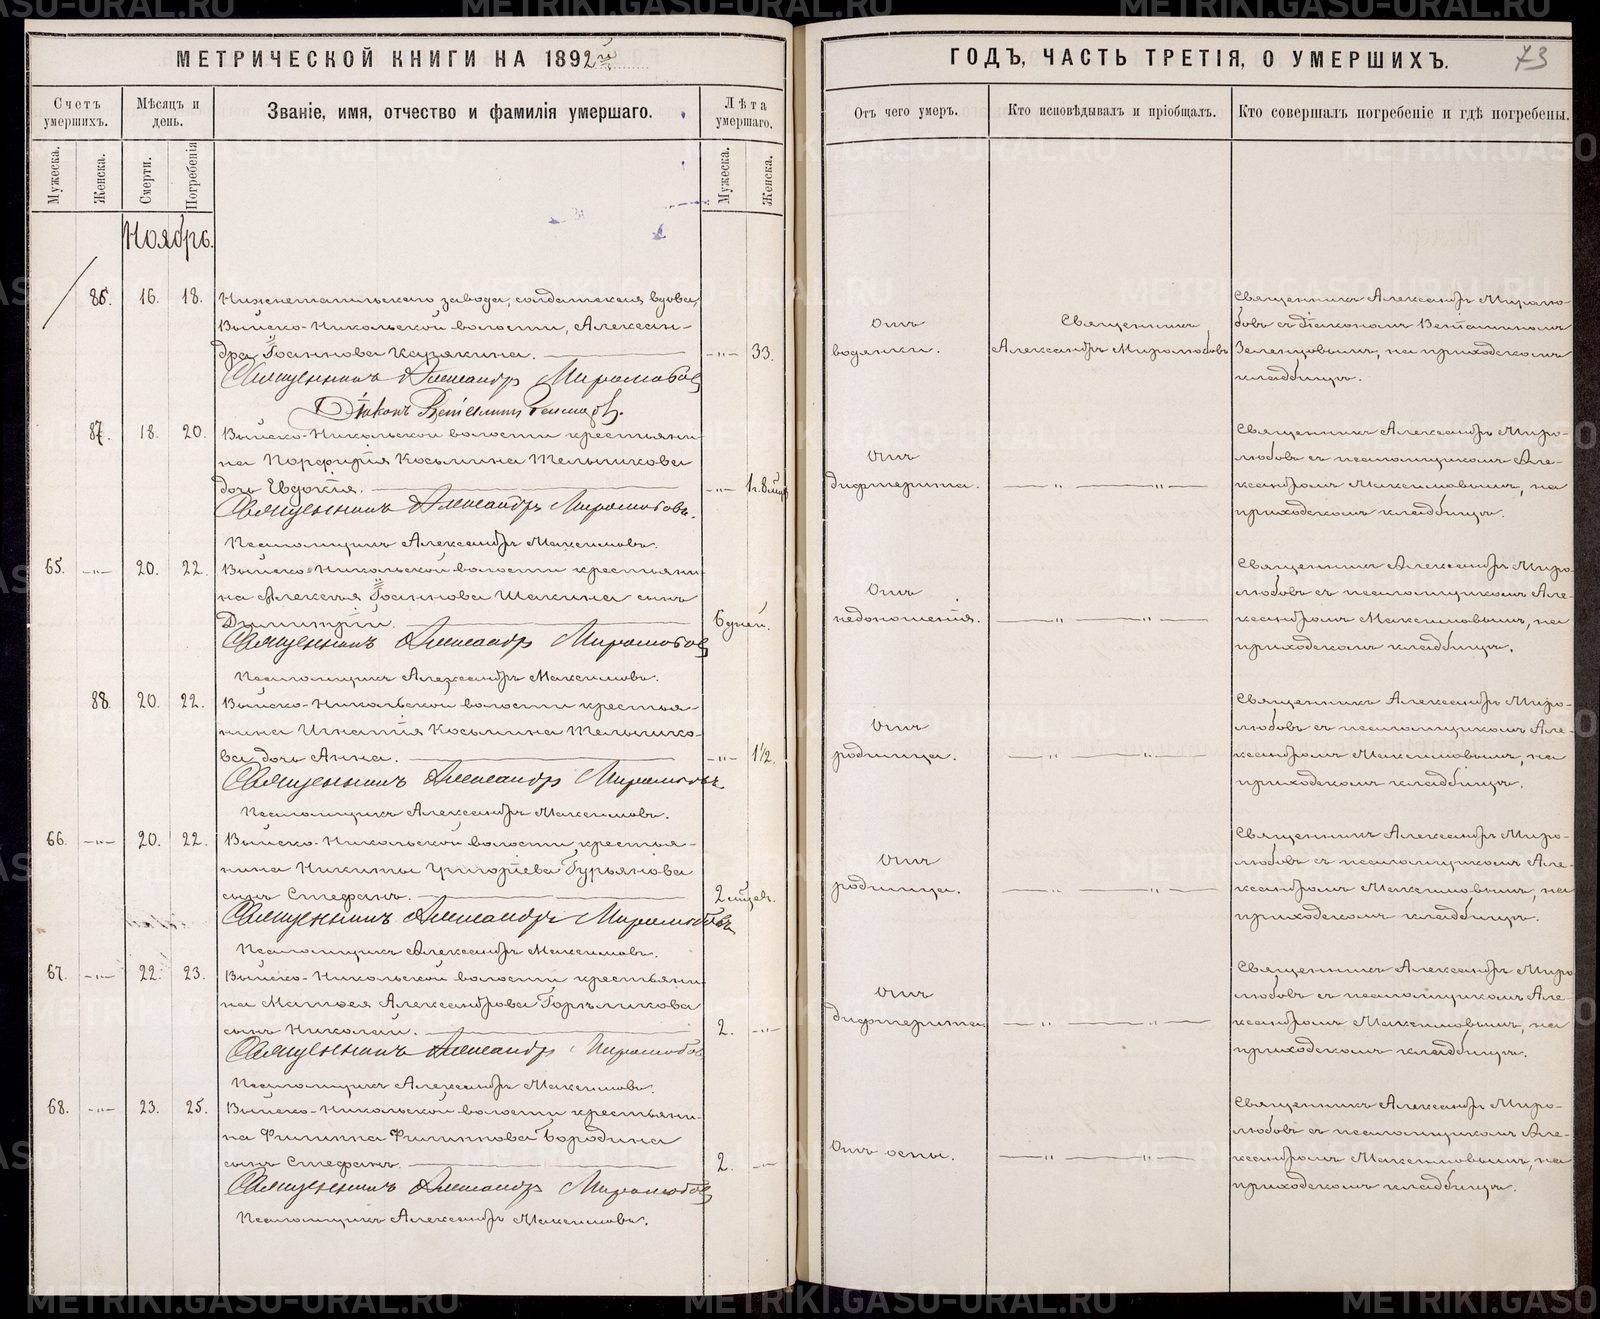 МЕТРИЧЕСКОЙ КНИГИ НА 1892й
Счетъ умершихъ.
Мѣсяцъ и день.
Званіе, имя, отчество и фамилія умершаго.
Лѣта умершаго.
Мужеска.
Женска.
Смерти.
Погребенія
Мужеска.
Женска.
Ноябрь.
86. 16. 18. Нижнетагильскаго завода, солдатская вдова,
Выйско-Никольской волости, Алексан-
дра Іоаннова Карякина. -"- 33.
Священникъ Александръ Миролюбовъ
Діаконъ Веніаминъ Зеленцовъ.
87. 18. 20. Выйско-Никольской волости крестьяни-
на Порфирія Косьмина Мельникова
дочь Евдокія. -"- 1г. 8 мцъ
Священникъ Александръ Миролюбовъ.
Псаломщикъ Александръ Максимовъ.
65. -"- 20. 22. Выйско-Никольской волости крестьяни-
на Алексія Іоаннова Шакина сынъ
Димитрій. 6 дней.
Священникъ Александръ Миролюбовъ
Псаломщикъ Александръ Максимовъ.
88. 20. 22. Выйско-Никольской волости крестья-
нина Игнатія Косьмина Мельнико-
ва дочь Анна. -"- 1½.
Священникъ Александръ Миролюбовъ
Псаломщикъ Александръ Максимовъ.
66. -"- 20. 22. Выйско-Никольской волости крестья-
нина Никиты Григоріева Гурьянова
сынъ Стефанъ. 2 мцея.
Священникъ Александръ Миролюбовъ
Псаломщикъ Александръ Максимовъ.
67. -"- 22. 23. Выйско-Никольской волости крестьяни-
на Матѳея Александрова
сынъ Николай. 2. -"-
Священникъ Александръ Миролюбовъ
Псаломщикъ Александръ Максимовъ.
68. -"- 23. 25. Выйско-Никольской волости крестьяни-
на Филиппа Филиппова Бородина
сынъ Стефанъ. 2. -"-
Священникъ Александръ Миролюбовъ
Псаломщикъ Александръ Максимовъ.
ГОДЪ, ЧАСТЬ ТРЕТІЯ, О УМЕРШИХЪ. 73
Отъ чего умеръ.
Кто исповѣдывалъ и пріобщалъ.
Кто совершалъ погребеніе и гдѣ погребены.
Отъ
водянки.
Священникъ
Александръ Миролюбовъ
Священникъ Александръ Миролю-
бовъ съ діакономъ Веніаминомъ
Зеленцовымъ, на приходскомъ
кладбищѣ.
Отъ
дифтерита.
-"- -"-
Священникъ Александръ Миро-
любовъ съ псаломщикомъ Але-
ксандромъ Максимовымъ, на
приходскомъ кладбищѣ.
Отъ
недоношенія.
-"- -"-
Священникъ Александръ Миро-
любовъ съ псаломщикомъ Але-
ксандромъ Максимовымъ, на
приходскомъ кладбищѣ.
Отъ
родимца.
-"- -"-
Священникъ Александръ Миро-
любовъ съ псаломщикомъ Але-
ксандромъ Максимовымъ, на
приходскомъ кладбищѣ.
Отъ
родимца.
-"- -"-
Священникъ Александръ Миро-
любовъ съ псаломщикомъ Але-
ксандромъ Максимовымъ, на
приходскомъ кладбищѣ.
Отъ
дифтерита.
-"- -"-
Священникъ Александръ Миро-
любовъ съ псаломщикомъ Але-
ксандромъ Максимовымъ, на
приходскомъ кладбищѣ.
Отъ оспы.
-"- -"-
Священникъ Александръ Миро-
любовъ съ псаломщикомъ Але-
ксандромъ Максимовымъ, на
приходскомъ кладбищѣ.
METRIKI.GASU-URAL.RU